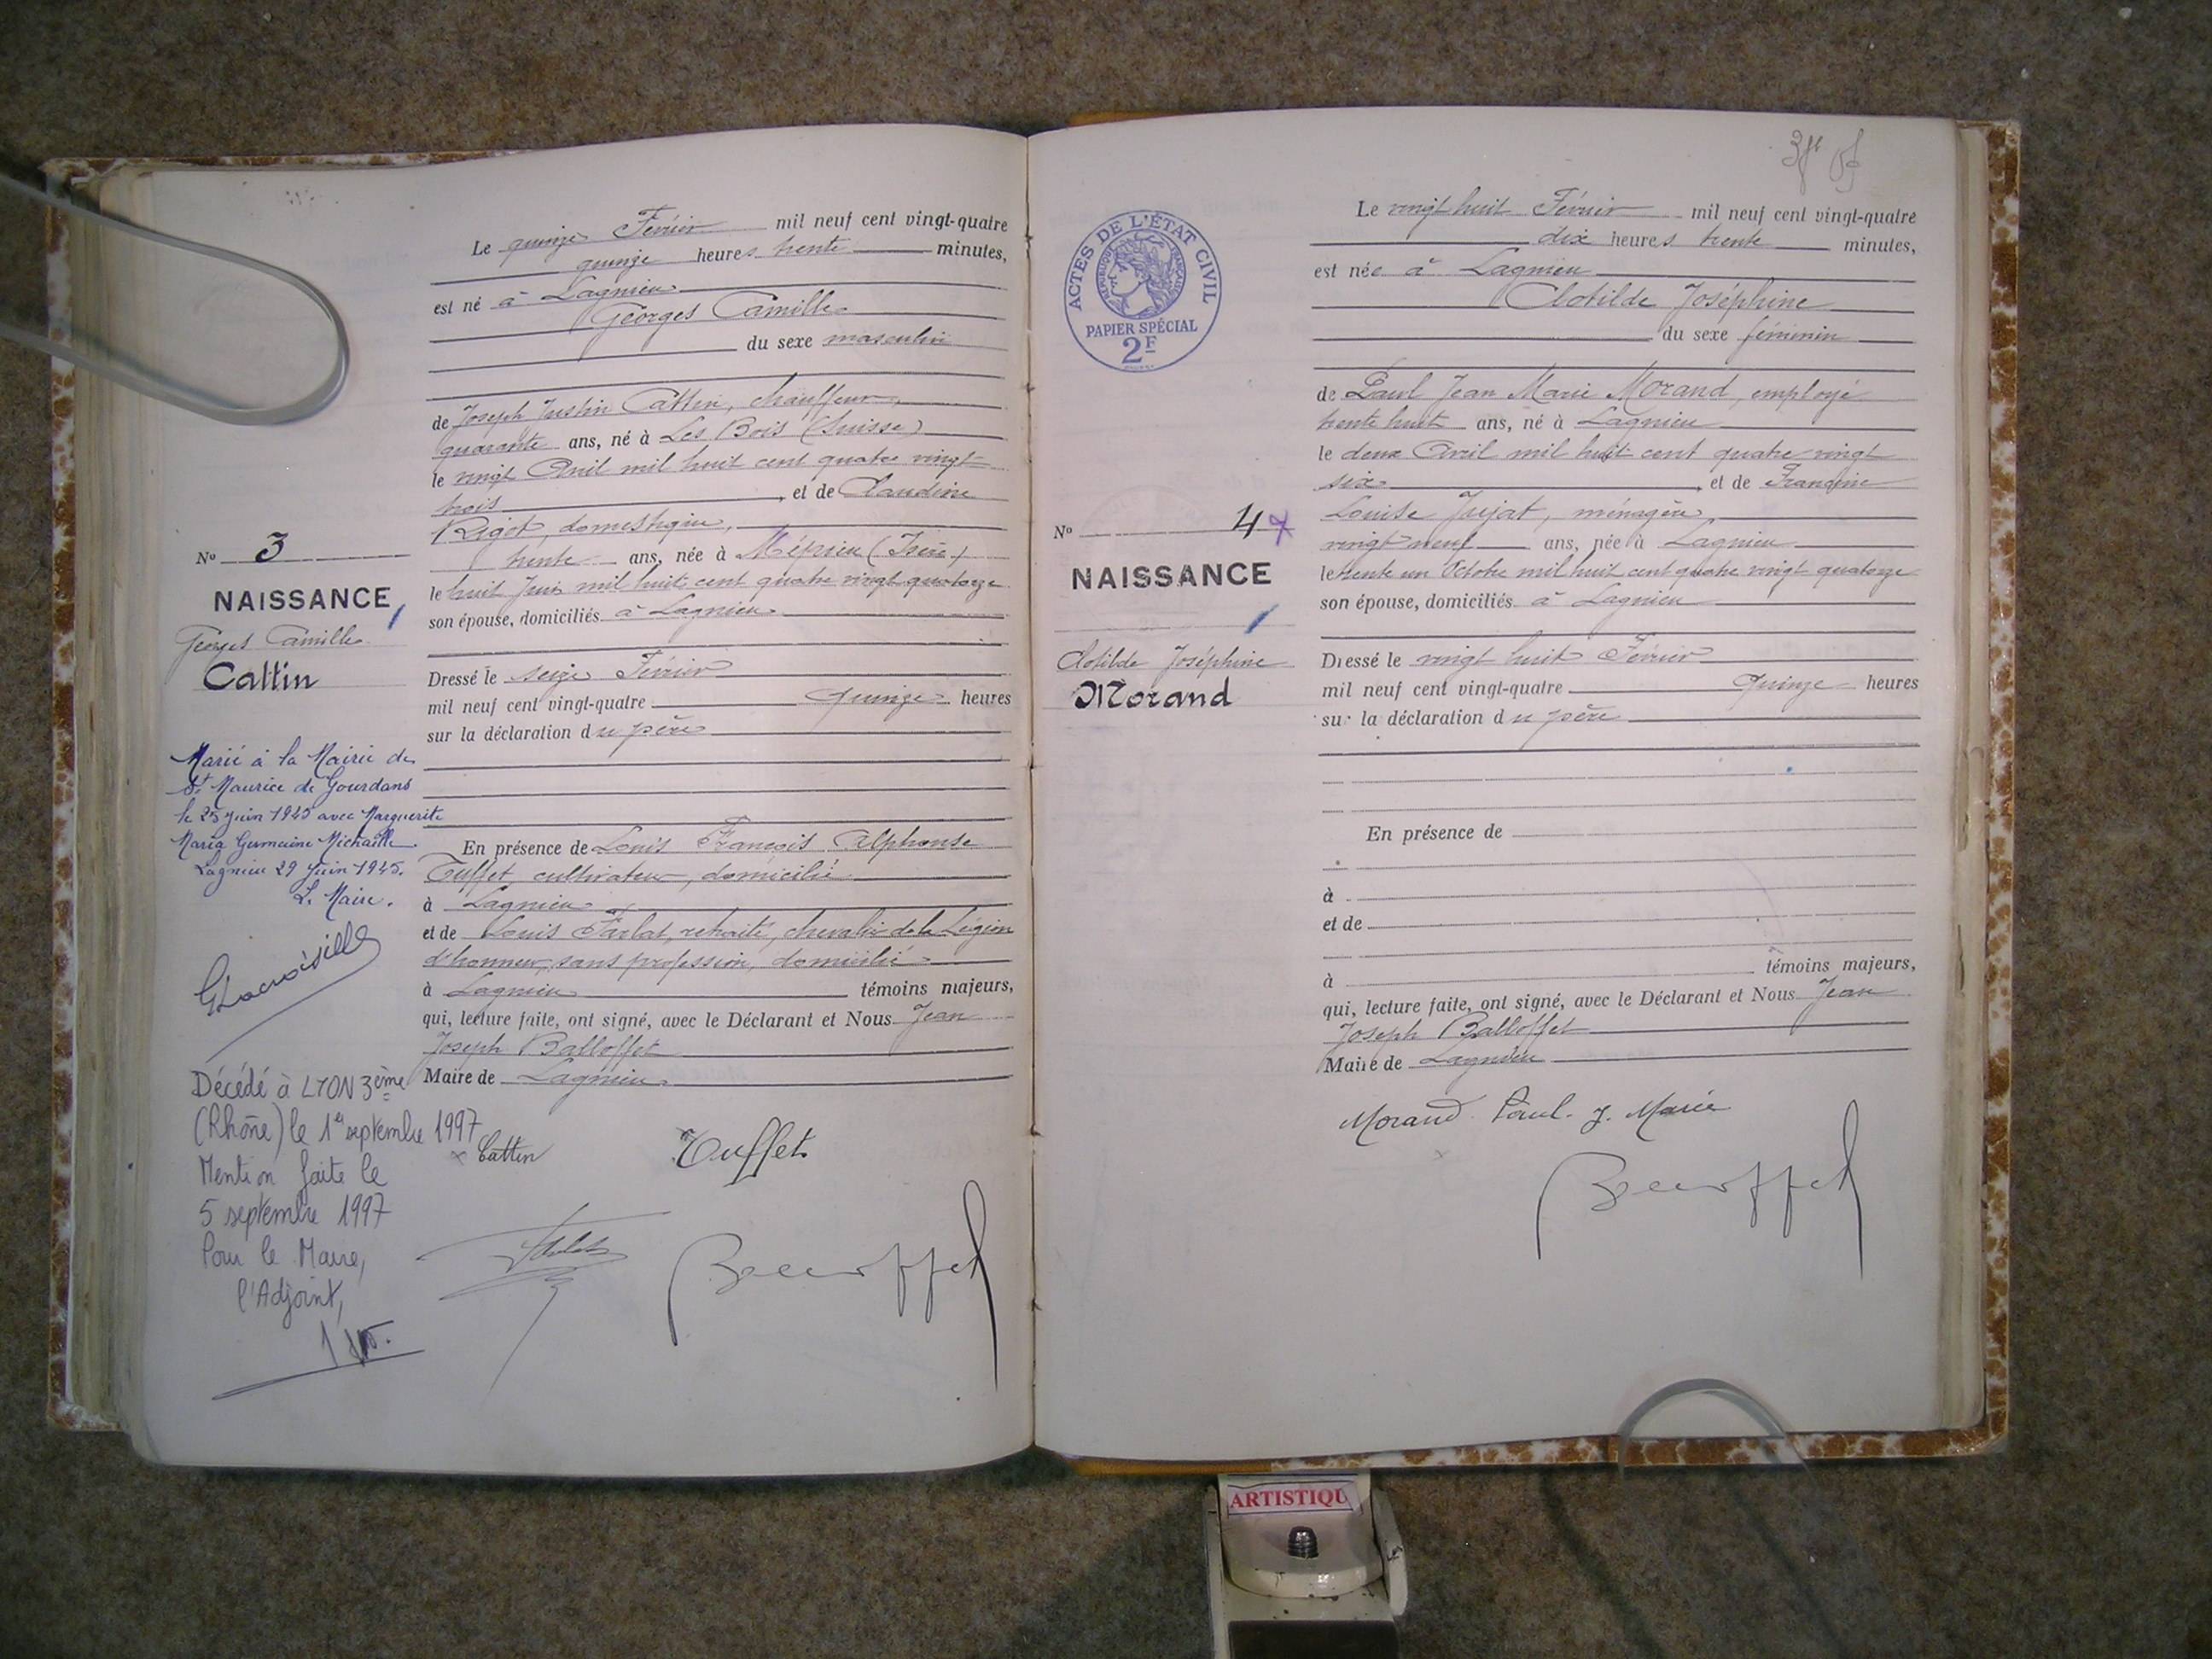 Le quinze Février mil neuf cent vingt-quatre
quinze heures trente minutes,
est né à Lagnieu
Georges Camille
du sexe masculin
de Joseph Justin Cattin, chauffeur,
quarante ans, né à Les Bois (Suisse)
le vingt Avril mil huit cent quatre vingt
trois, et de Claudine
Rigot, domestique,
trente ans, née à Mépieu (Isère)
le huit Juin mil huit cent quatre vingt quatorze
son épouse, domiciliés à Lagnieu
Dressé le seize Février
mil neuf cent vingt-quatre quinze heures
sur la déclaration du père
En présence de Louis François Alphonse
Tuffet, cultivateur, domicilié
à Lagnieu
et de Louis Farlat, retraité, chevalier de la Légion
d'honneur, sans profession, domicilié
à Lagnieu témoins majeurs,
qui, lecture faite, ont signé, avec le Déclarant et Nous Jean
Joseph Balloffet
Maire de Lagnieu
Cattin Tuffet
No 3
NAISSANCE
Georges Camille
Cattin
Marié à la Mairie de
St Maurice de Gourdans
le 25 juin 1945 avec Marguerite
Maria Germaine Michaille
Lagnieu 29 Juin 1945.
Le Maire.
Décédé à LYON 3ème
(Rhône) le 1er septembre 1997
Mention faite le
5 septembre 1997
Pour le Maire,
l'Adjoint,
ACTES DE L'ÉTAT CIVIL
RÉPUBLIQUE FRANÇAISE
PAPIER SPÉCIAL
2F
No 4
NAISSANCE
Clotilde Joséphine
Morand
Le vingt huit Février mil neuf cent vingt-quatre
dix heures trente minutes,
est née à Lagnieu
Clotilde Joséphine
du sexe féminin
de Paul Jean Marie Morand, employé
trente huit ans, né à Lagnieu
le deux Avril mil huit cent quatre vingt
six, et de Francine
Louise Jujat, ménagère
vingt neuf ans, née à Lagnieu
le trente un Octobre mil huit cent quatre vingt quatorze
son épouse, domiciliés à Lagnieu
Dressé le vingt huit Février
mil neuf cent vingt-quatre Quinze heures
sur la déclaration du père
En présence de
à
et de
à témoins majeurs,
qui, lecture faite, ont signé, avec le Déclarant et Nous Jean
Joseph Balloffet
Maire de Lagnieu
Morand Paul. J. Marie
Balloffet
ARTISTIQU